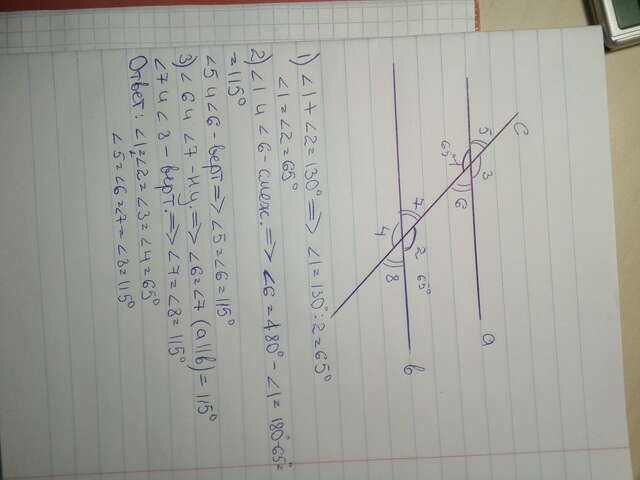 c
5 3 a
65° 1 6
7 2 65°
4 8 b
1) ∠1+∠2=130° => ∠1=130°:2=65°
∠1=∠2=65°
2) ∠1 и ∠6 - смеж. => ∠6=180°-∠1=180°-65°=
=115°
∠5 и ∠6 - верт => ∠5=∠6=115°
3) ∠6 и ∠7 - н.у. => ∠6=∠7 (a||b)=115°
∠7 и ∠8 - верт. => ∠7=∠8=115°
Ответ: ∠1=∠2=∠3=∠4=65°
∠5=∠6=∠7=∠8=115°